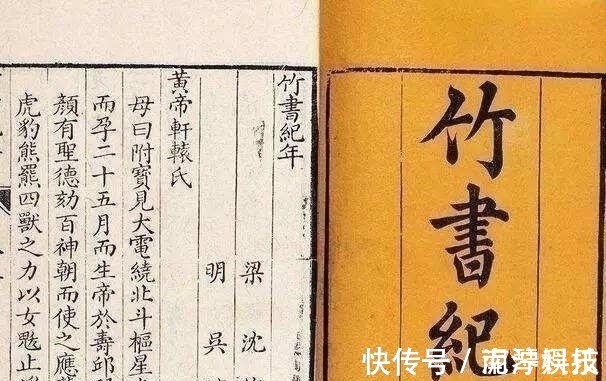 竹書紀
竹書紀年
梁 沈
明 吳
黃帝軒轅氏
母曰附寶見大電繞北斗樞星
而孕二十五月而生帝於壽邱
顏有聖德劾百神朝而使之應
虎豹熊羆四獸之力以女魃止
快传号 /